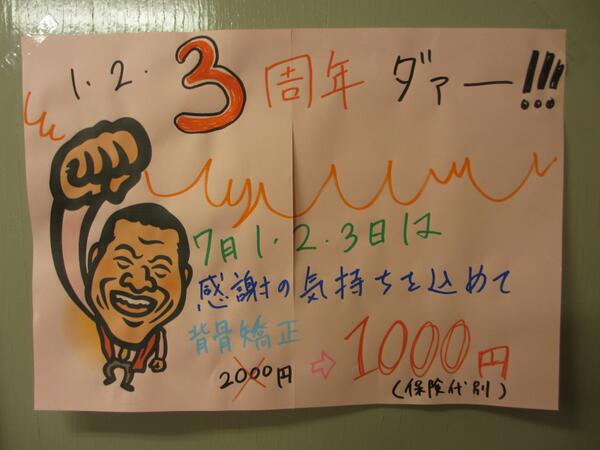 1.2.3周年ダァー!!!
7月1.2.3日は
感謝の気持ちを込めて
背骨矯正
2000円⇨1000円
(保険代別)